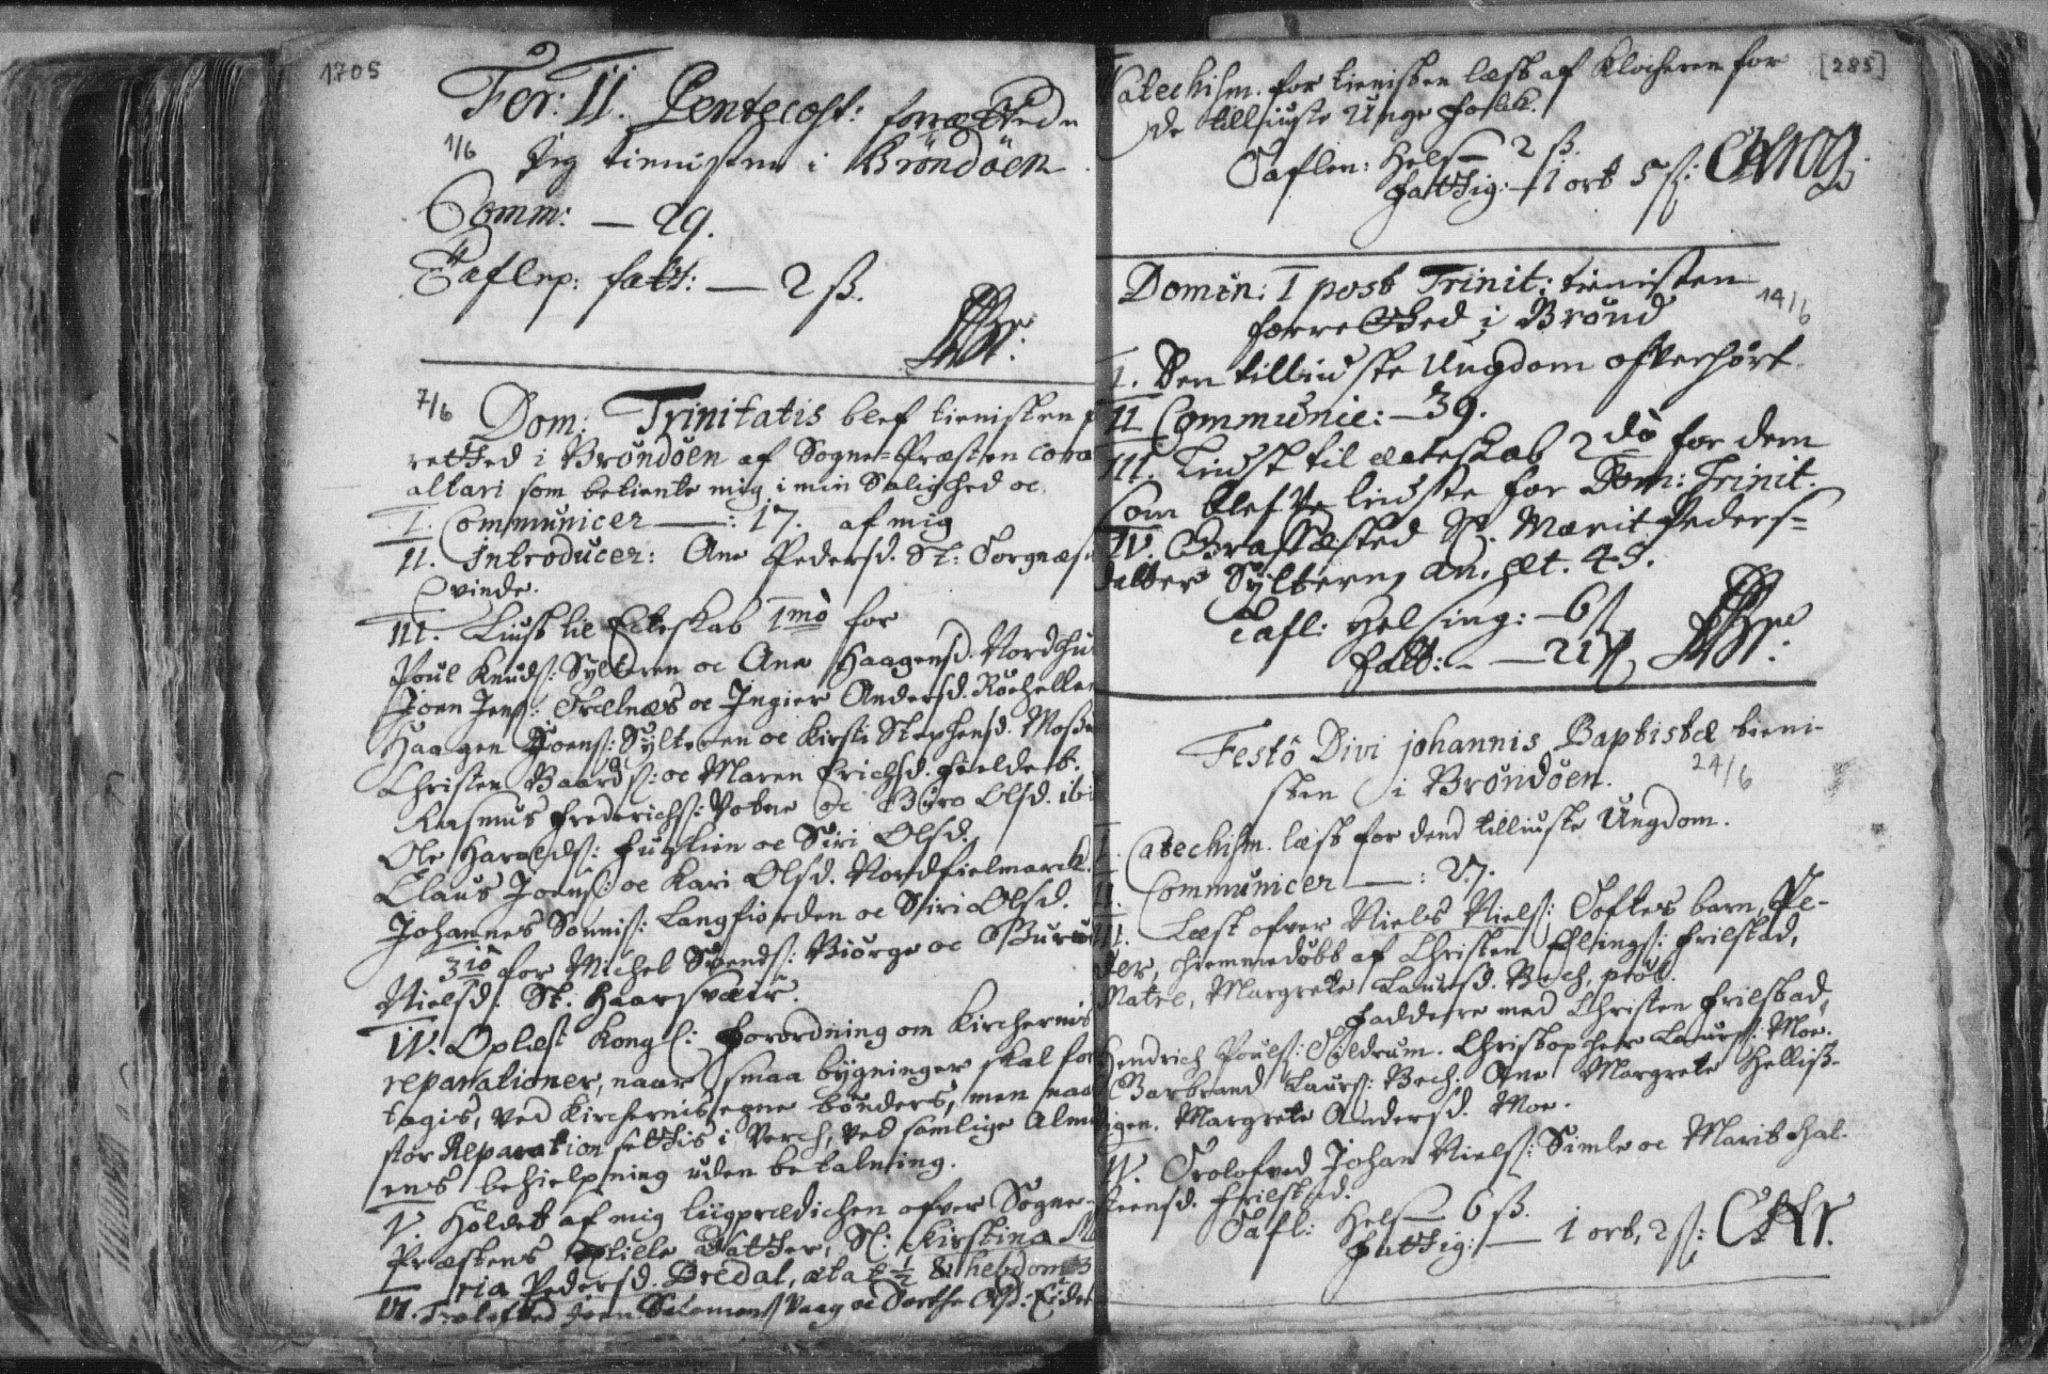 1705
Fer: II. Pentecost: forrættede
1/6
Jeg tienisten i Bröndöen
Comm: — 29.
Taflep: fatt: — 2 ß.
7/6
Dom: Trinitatis blef tienisten f
rettted i Bröndöen af Sogne=Præsten cora
altari som betiente mig i min Salighed oc
I. Communicer —: 17. af mig
II. Introducer: Ane Pedersd. St: Torgnæs
Qvinde.
III. Liust til Ecteskab 1mo for
Poul Knuds: Sylteren oc Ane Haagensd. Nordhu
Joen Jens: Trælnæs oc Ingier Andersd.
Haagen Joens: Sylteren oc Kirsti Stephensd. Mos
Christen Baards: oc Maren Erichsd. Fieldet.
Rasmus Frederichs: Votne oc Buro Olsd. ibi
Ole Haralds: Fuglien oc Siri Olsd.
Claus Joens: oc Kari Olsd. Nordfielmarck.
Johannes Sonnis: Langfiorden oc Siri Olsd.
3io for Michel Svends: Biörge oc Buru
Nielsd: St: Haarsvær.
IV. Oplæst Kongl: Forordning om Kirchernis
reparationer, naar smaa bygninger skal for
tagis, ved Kirchernis egne bönders, men naa
stor Reparation settis i Verch, ved samlige Alm
ens behielpning uden betalning.
V. Holdet af mig liigprædichen ofver Sogne-
Præstens lille Datter, Sl: Kirstina Ma
ria Pedersd. Bredal, ætat ½ & hebdom 3
VI. Trolofved Joen Salomons Vaag oc Dorthe Olsd:
[285]
Catechism. for tienisten læst af Klocheren for
de tilliuste Unge Folck.
Taflen: Hels — 2 ß.
Fattig: — 1 ort 5 ß:
Domin: I post Trinit: tienisten
14/6
forretted i Brönd
I. Den tilliuste Ungdom ofverhört
II Communic: — 39.
III. Liust til ecteskab 2do for dem
som blefve liuste for Dom: Trinit.
IV. Grafæsted Sl. Marit Peders=
datter Sylteren an. æt. 43.
Tafl: Helsing: — 6 ß
Fatt: — — 21 ß
Festo Divi Johannis Baptistæ tieni-
24/6
sten i Bröndöen.
I. Catechism. læst for dend tilliuste Ungdom.
II. Communicer —: 27.
III. Læst ofver Niels Niels: Toftes barn, Pe-
der, hiemmedöbt af Christen Ellings: Frilstad,
Matre, Margrete Laursd. Bech, præs.
Faddere med Christen Frilstad,
Hendrich Pouls: Tilrum. Christopher Laurs: Moe.
Barbrand Laurs: Bech. Ane Margrete Hellis-
vigen. Margrete Andersd. Moe.
IV. Trolofved Johan Niels: Simle oc Marit Hal-
steensd. Frilstad.
Tafl: Hels — 6 ß.
Fattig: — 1 ort, 2 ß: